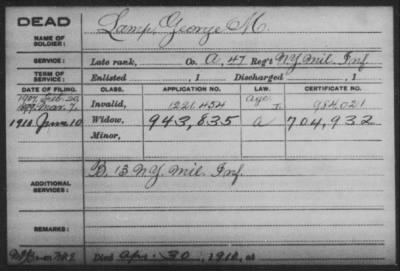 DEAD
Lamp, George M.
NAME OF SOLDIER:
SERVICE: Late rank, Co. A, 47 Reg't N.Y. Mil. Inf.
TERM OF SERVICE: Enlisted , 1 Discharged , 1
DATE OF FILING. CLASS. APPLICATION NO. LAW. CERTIFICATE NO.
1907 Feb. 20 Age
1899 Mar. 7. Invalid, 1221.454 984021
1910 June 10 Widow, 943,835 a 704,932
Minor,
B. 13 N.Y. Mil. Inf.
ADDITIONAL SERVICES:
REMARKS:
Died Apr. 30, 1910, at